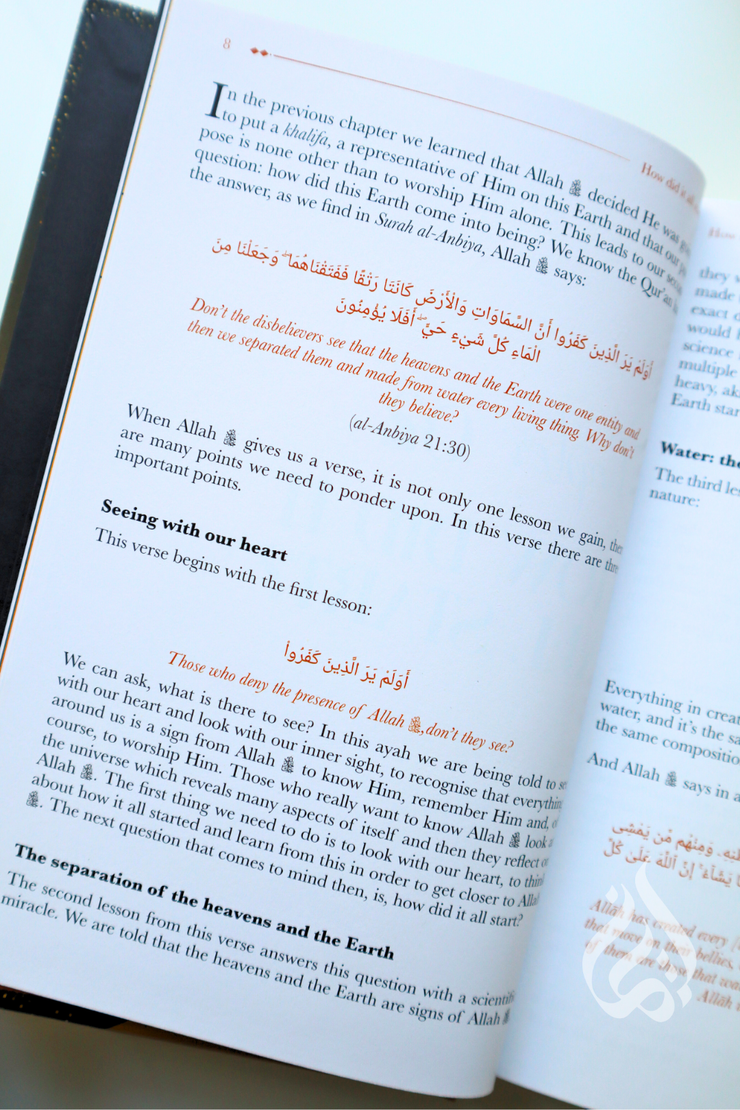 8
How did it all
In the previous chapter we learned that Allah ﷻ decided He was
to put a khalifa, a representative of Him on this Earth and that our
pose is none other than to worship Him alone. This leads to our
question: how did this Earth come into being? We know the Qur'an
the answer, as we find in Surah al-Anbiya, Allah ﷻ says:
أَوَلَمْ يَرَ الَّذِينَ كَفَرُوا أَنَّ السَّمَاوَاتِ وَالْأَرْضَ كَانَتَا رَتْقًا فَفَتَقْنَاهُمَا ۖ وَجَعَلْنَا مِنَ
الْمَاءِ كُلَّ شَيْءٍ حَيٍّ ۖ أَفَلَا يُؤْمِنُونَ
Don't the disbelievers see that the heavens and the Earth were one entity and
then we separated them and made from water every living thing. Why don't
they believe?
(al-Anbiya 21:30)
When Allah ﷻ gives us a verse, it is not only one lesson we gain,
are many points we need to ponder upon. In this verse there are three
important points.
Seeing with our heart
This verse begins with the first lesson:
أَوَلَمْ يَرَ الَّذِينَ كَفَرُوا
Those who deny the presence of Allah ﷻ, don't they see?
We can ask, what is there to see? In this ayah we are being told to
with our heart and look with our inner sight, to recognise that everything
around us is a sign from Allah ﷻ to know Him, remember Him and,
course, to worship Him. Those who really want to know Allah ﷻ look
the universe which reveals many aspects of itself and then they reflect
Allah ﷻ. The first thing we need to do is to look with our heart, to think
about how it all started and learn from this in order to get closer to Allah
ﷻ. The next question that comes to mind then, is, how did it all start?
The separation of the heavens and the Earth
The second lesson from this verse answers this question with a scientific
miracle. We are told that the heavens and the Earth are signs of Allah ﷻ
How
they
made
exact
would
science
multiple
heavy,
Earth
Water:
The third
nature:
Everything in
water, and it's the
the same
And Allah ﷻ says in
وَمِنْهُم مَّن يَمْشِي
يَشَاءُ ۚ إِنَّ اللَّهَ عَلَىٰ كُلِّ
Allah has created every
that move on their bellies,
of them are those that
Allah